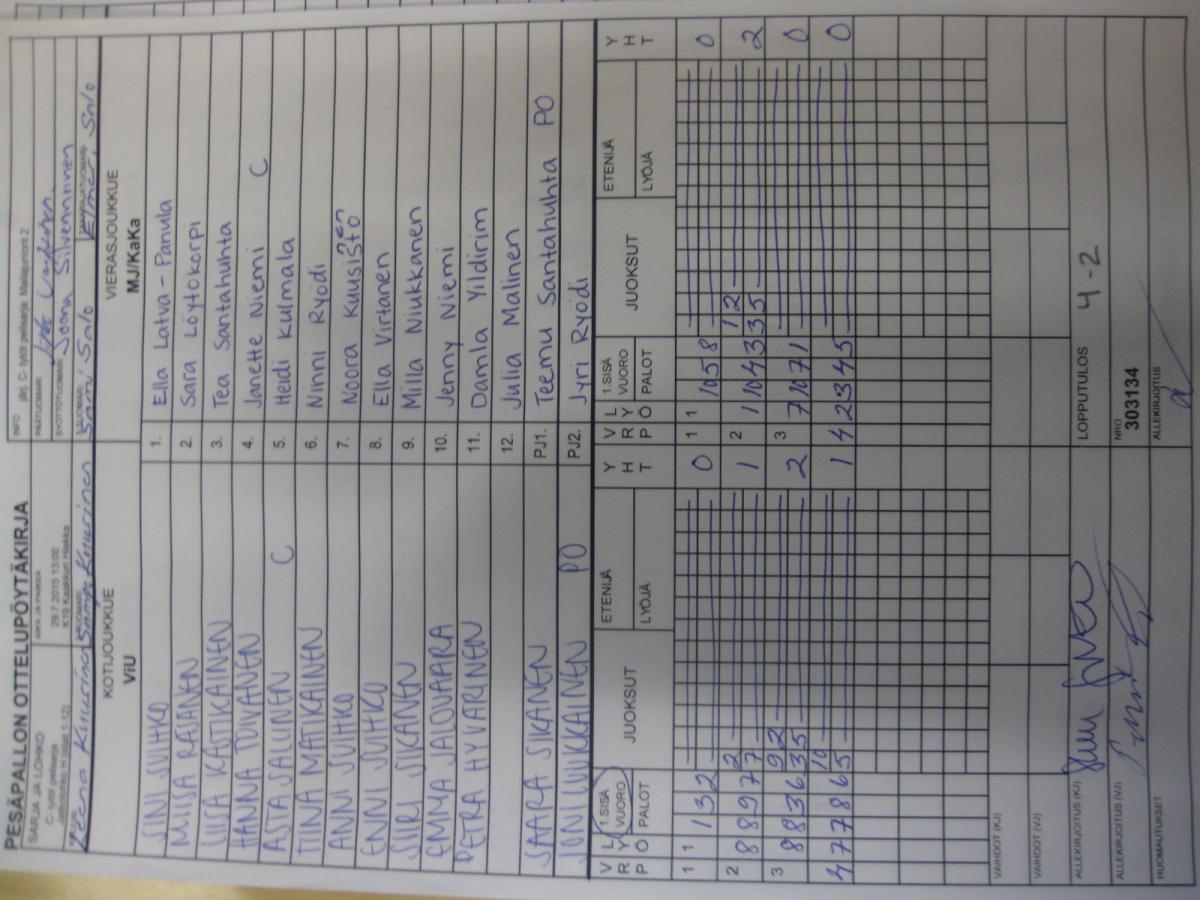 PESÄPALLON OTTELUPÖYTÄKIRJA
SARJA JA LOHKO
C- tytöt pelisarja
Jatkolohko H (sijat 1-12)
AIKA JA PAIKKA
29.7.2015 13:00
K19 Kaakkuri Hiekka
INFO
järj. C- tytöt pelisarja Mailajuniorit 2
PÄÄTUOMARI
SYÖTTÖTUOMARI
Joona Silvenniinen
Leena Kuurinen
Kuurinen
Sami Salo
Elmeri Salo
KOTIJOUKKUE
ViU
VIERASJOUKKUE
MJ/KaKa
SINI SUIHKO
1. Ella Latva-Panula
MIISA RÄSÄNEN
2. Sara Löytökorpi
LIISA KAUTIKAINEN
3. Tea Santahuhta
HANNA TOIVANEN
4. Janette Niemi C
ASTA SALLINEN C
5. Heidi Kulmala
TIINA MATIKAINEN
6. Ninni Ryödi
ANNI SUIHKO
7. Noora Kuusisto
nen
ENNI SUIHKO
8. Ella Virtanen
SIIRI SIKANEN
9. Milla Niukkanen
EMMA JALOVAARA
10. Jenny Niemi
PETRA HYVÄRINEN
11. Damla Yildirim
12. Julia Malinen
SAARA SIKANEN
PJ1. Teemu Santahuhta PO
JONI LIUKKAINEN PO
PJ2. Jyri Ryödi
V R P L Y Ö 1.SISÄ VUORO PALOT JUOKSUT ETENIJÄ LYÖJÄ Y H T
V R P L Y Ö 1.SISÄ VUORO PALOT JUOKSUT ETENIJÄ LYÖJÄ Y H T
1 1 1 3 2 0
1 1 10 5 8 0
2 2
1 2
2 8 8 9 7 7 1
2 1 10 4 3 3 5 2
3 9 2
3 8 8 3 6 3 5 2
3 7 10 7 1 0
10
4 7 7 8 6 5 1
4 2 3 4 5 0
VAIHDOT (KJ)
VAIHDOT (VJ)
ALLEKIRJOITUS (KJ)
LOPPUTULOS 4 - 2
ALLEKIRJOITUS (VJ)
NRO
303134
HUOMAUTUKSET
ALLEKIRJOITUS